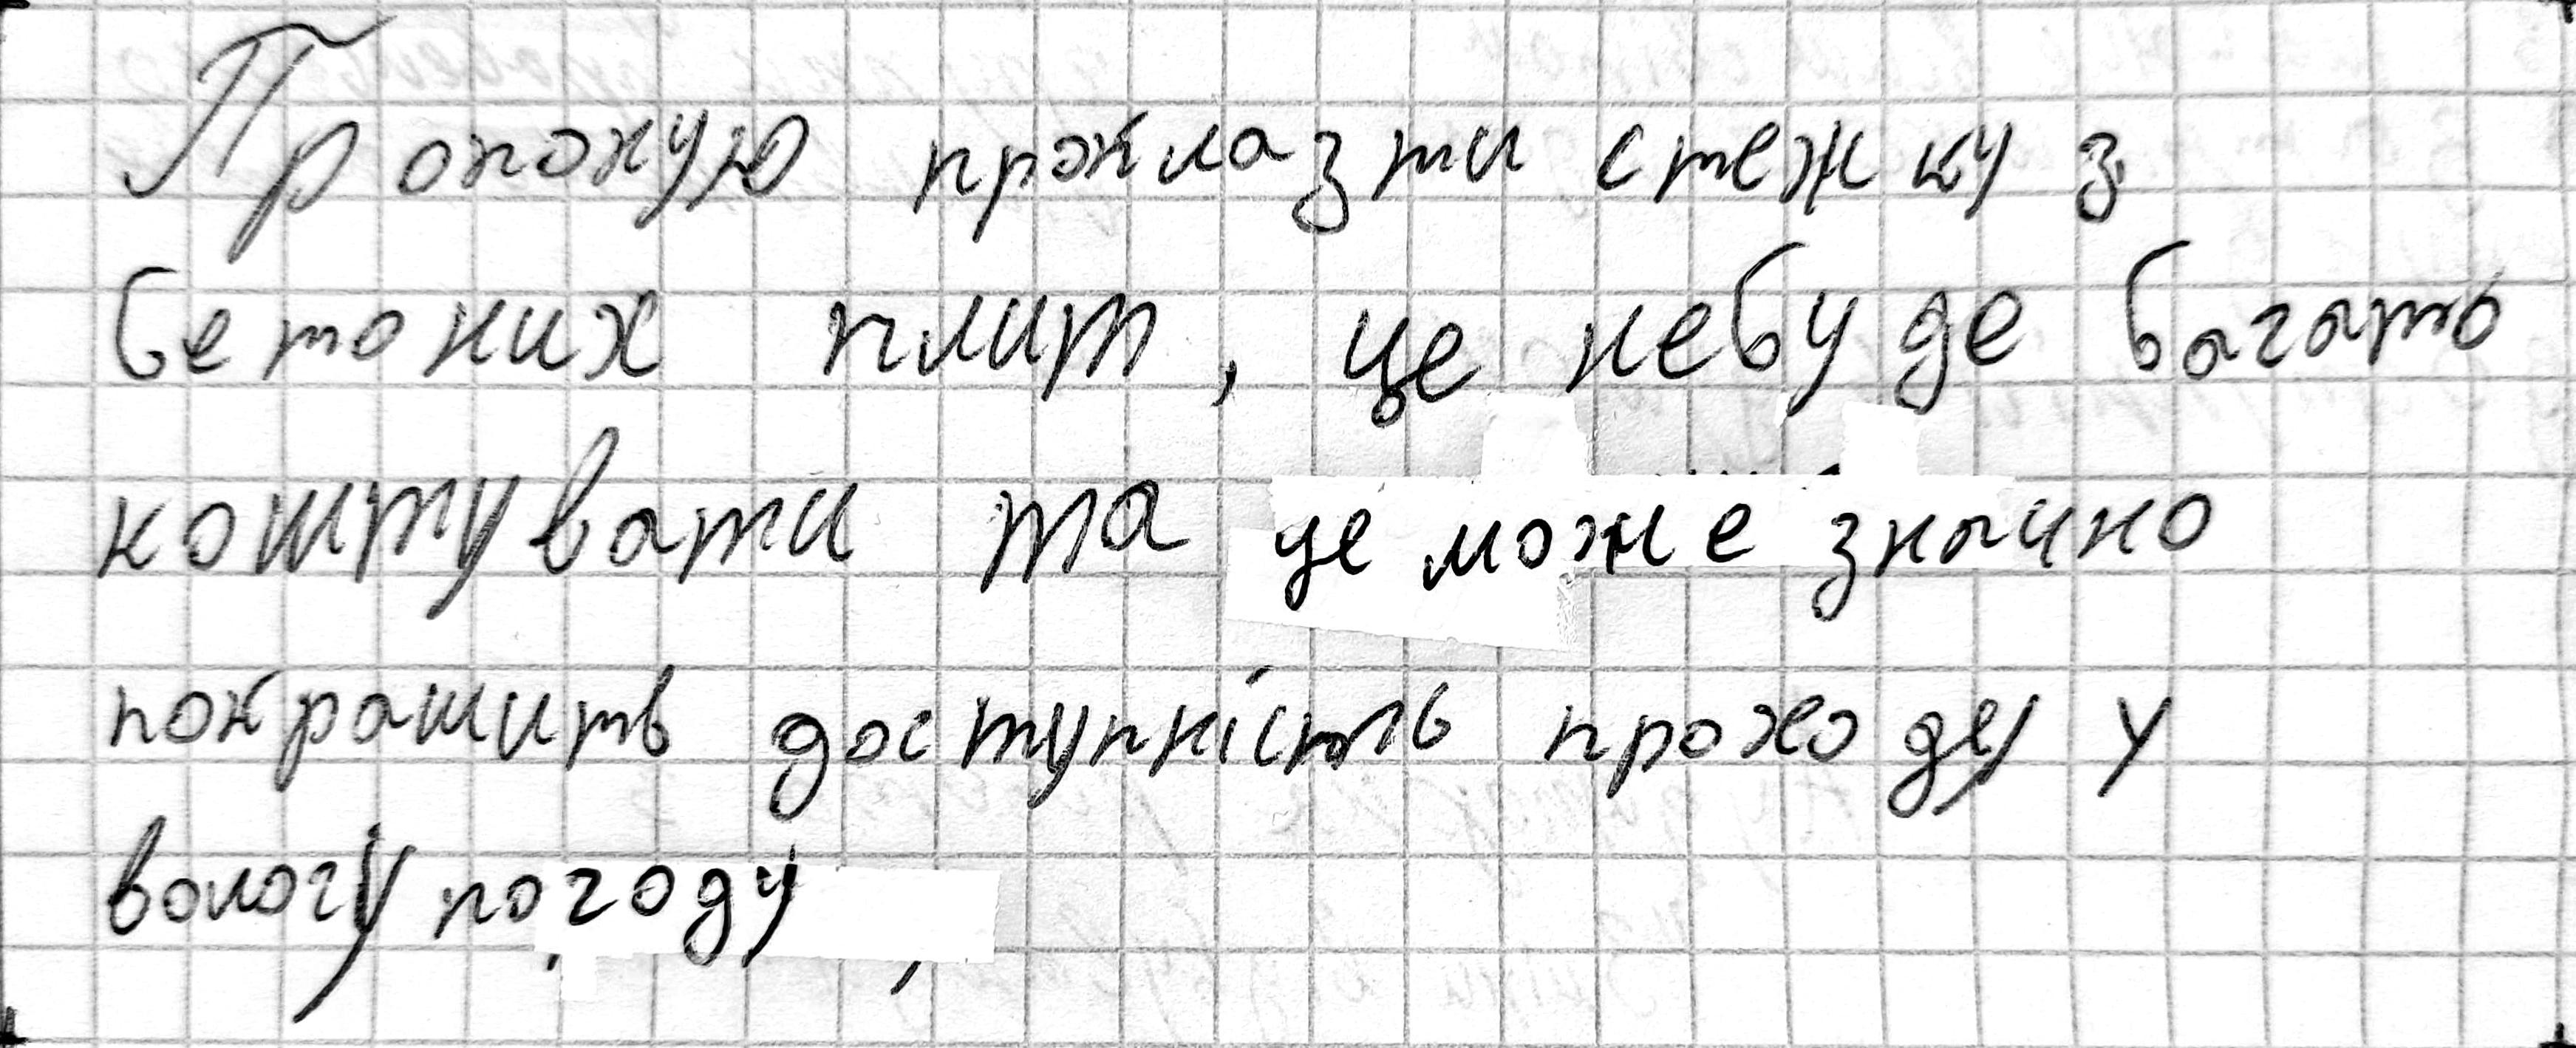 Пропоную прокласти стежку з
бетоних плит, це небуде багато
коштувати та це може значно
покрашить доступність проходу у
вологу погоду